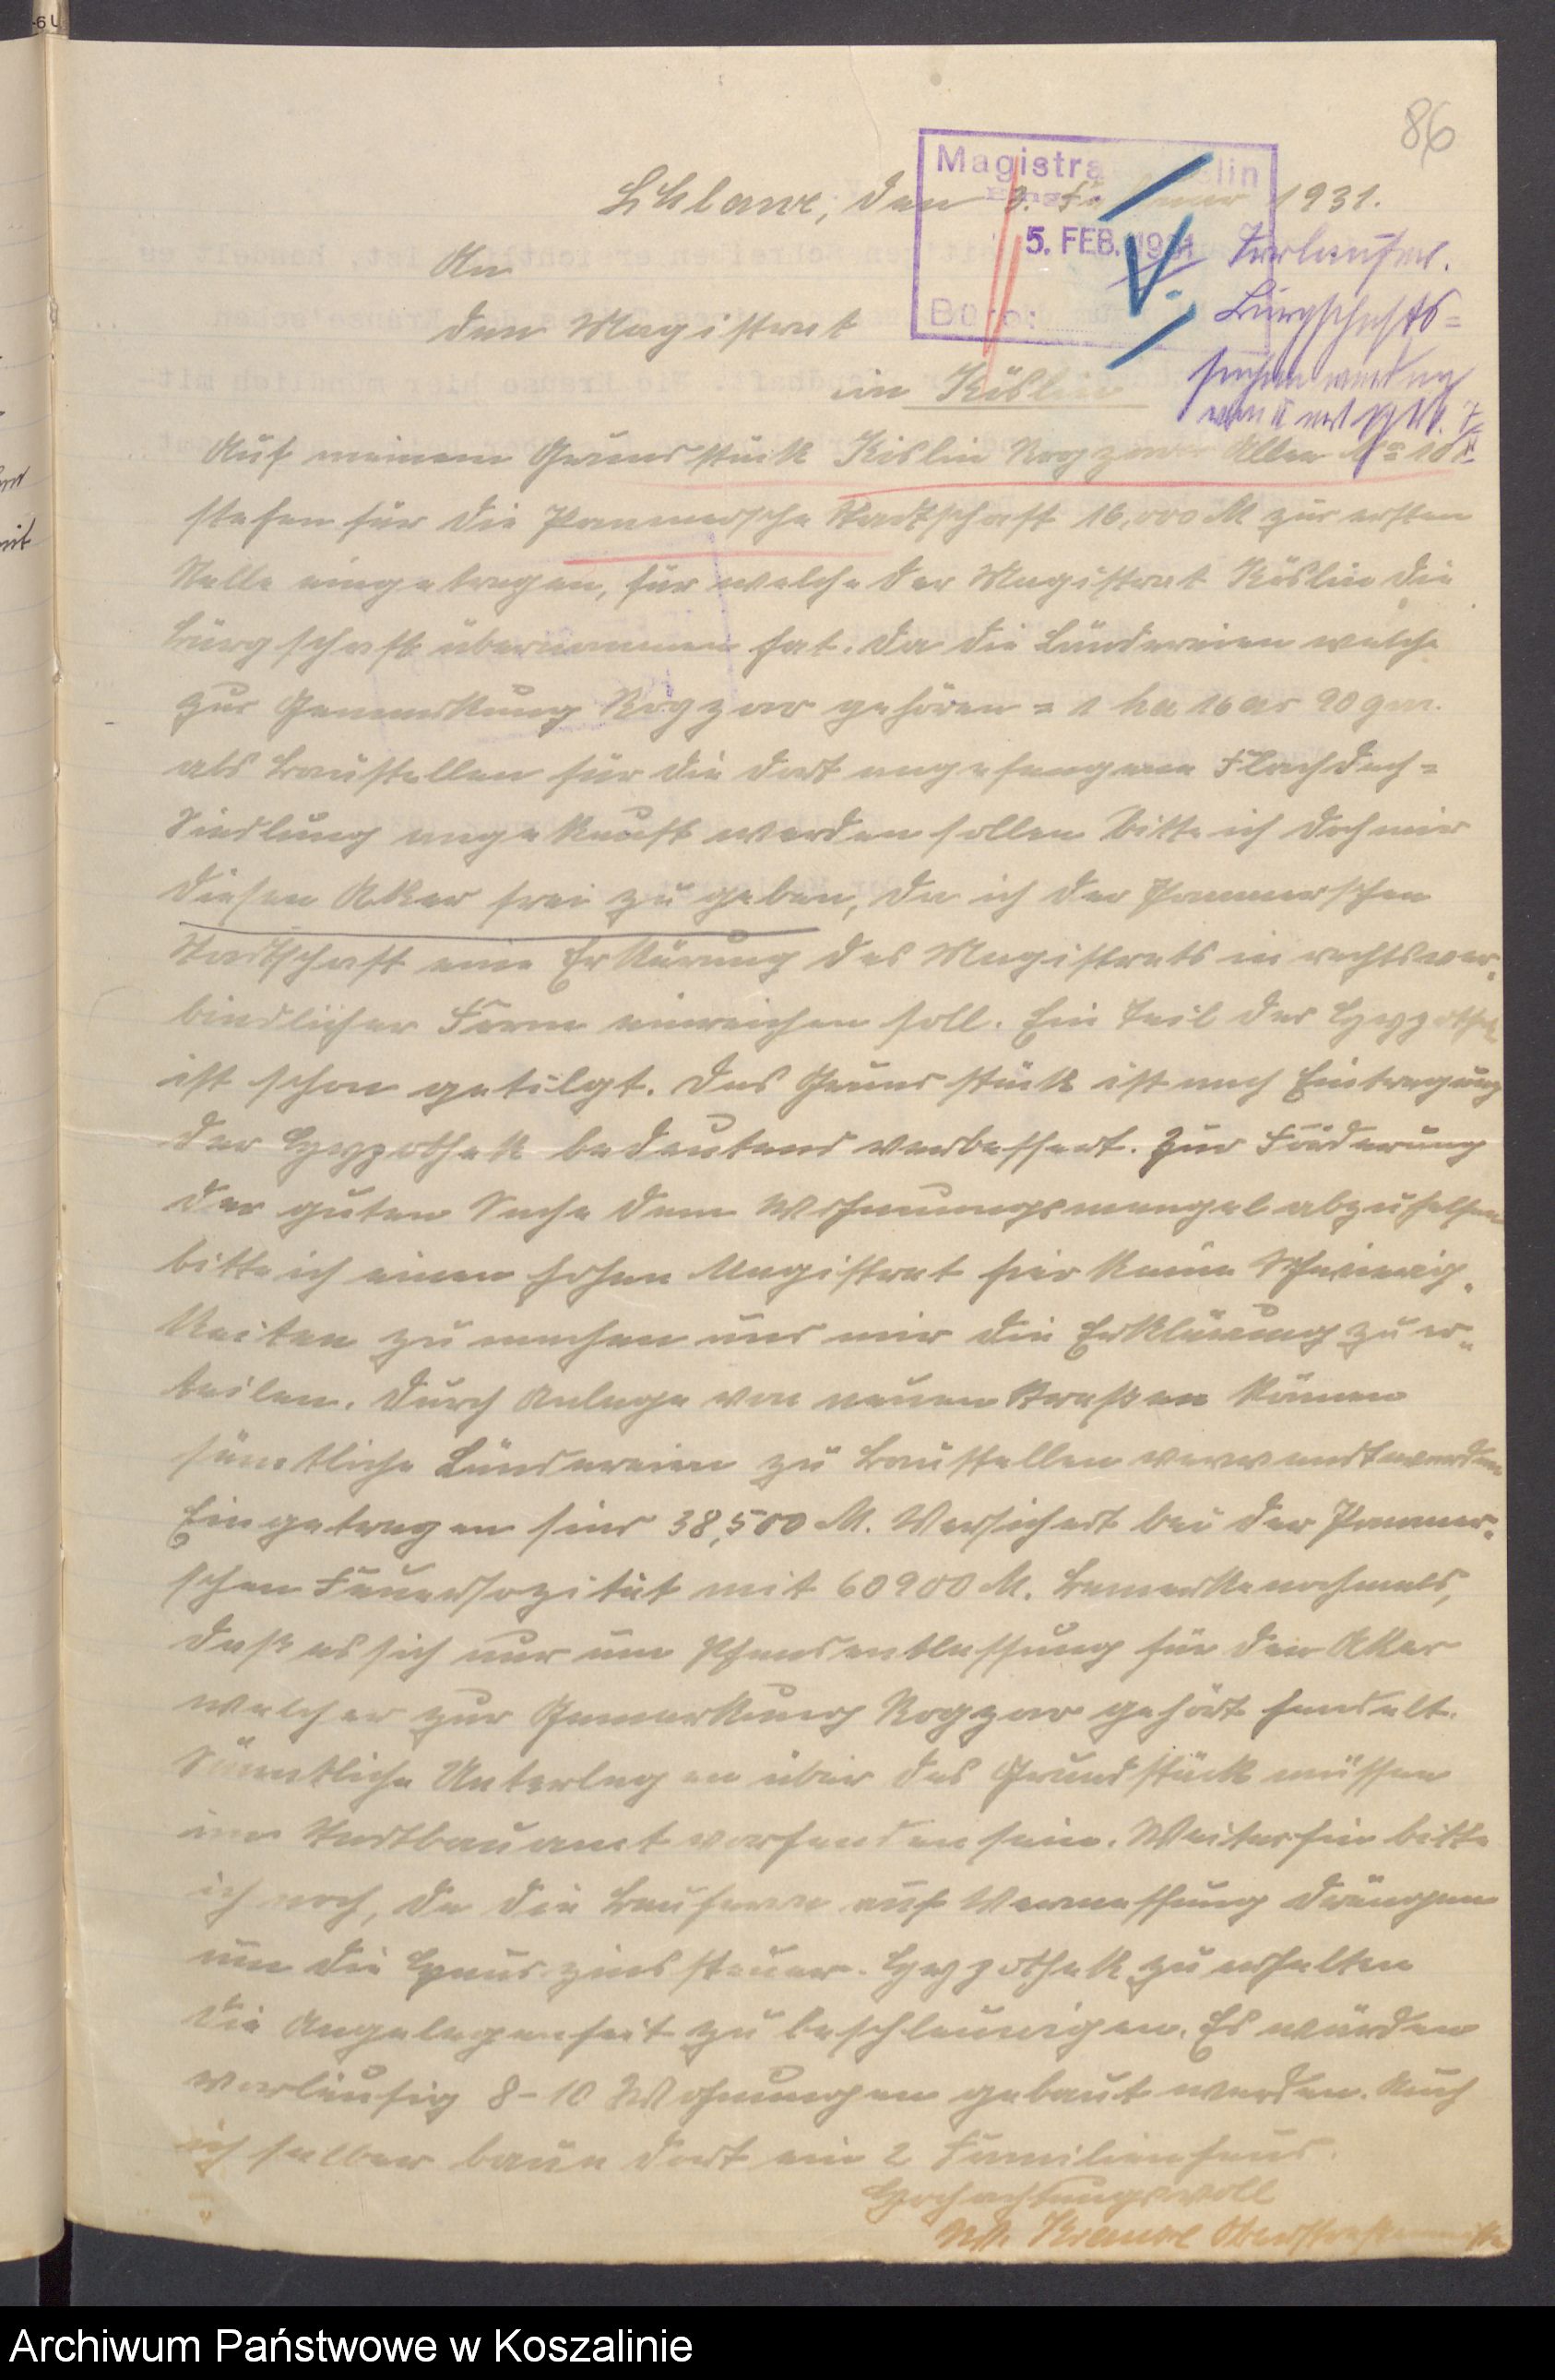 86
Magistra lin
Schlawe, den 3. Fe uar 1931.
5. FEB. 1931
An
den Magistrat
Büro:
in Köslin
Bürgschafts=
Auf meinem Grundstück Köslin Rogzower Allee No 10
stehen für die Pommersche Stadtschaft 16,000 M zur ersten
Stelle eingetragen, für welche der Magistrat Köslin die
Bürgschaft übernommen hat. Da die Ländereien welche
zur Gemarkung Rogzow gehören = 1 ha 16 ar 90 qm.
als Baustellen für die dort angefangene Flachdach=
Siedlung angekauft werden sollen bitte ich doch mir
diesen Aker frei zu geben, da ich der Pommerschen
Stadtschaft eine Erklärung des Magistrats in rechtsver-
bindlicher Form einreichen soll. Ein Teil der Hypothek
ist schon getilgt. Das Grundstück ist nach Eintragung
der Hypothek bedeutend verbessert. Zur Föderung
der guten Sache dem Wohnungsmangel abzuhelfen
bitte ich einen hohen Magistrat hier keine Schwierig-
keiten zu machen und mir die Erklärung zu er-
teilen. Durch Anlage von neuen Straßen können
sämtliche Ländereien zu Baustellen verwandt werden
Eingetragen sind 38,500 M. Versichert bei der Pommer-
schen Feuersozität mit 60900 M. Bemerke nochmals,
daß es sich nur um Pfandentlassung für den Aker
welcher zur Gemarkung Rogzow gehört handelt.
Sämtliche Unterlagen über das Grundstück müssen
im Stadtbauamt vorhanden sein. Weiterhin bitte
ich noch, da die Bauherrn auf Vermessung drängen
um die Hauszinssteuer-Hypothek zu erhalten
die Angelegenheit zu beschleunigen. Es würden
vorläufig 8-10 Wohnungen gebaut werden. Auch
ich selber baue dort ein 2 Familienhaus.
Hochachtungsvoll
Krause
Archiwum Państwowe w Koszalinie